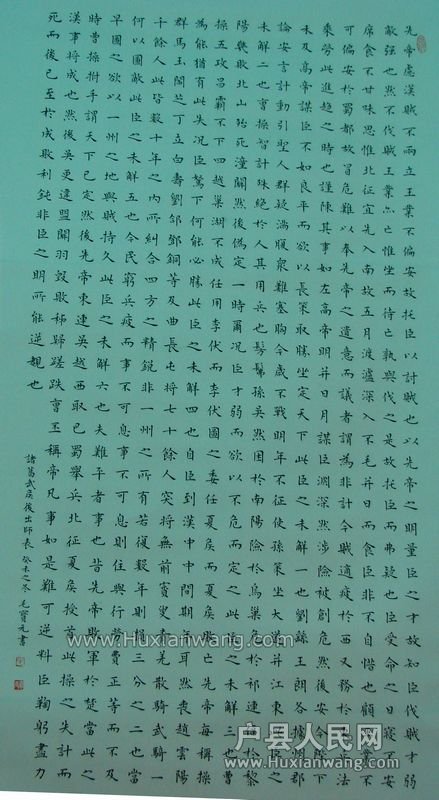 先帝慮漢賊不兩立王業不偏安故託臣以討賊也以先帝之明量臣之才故知臣伐賊才弱
敵强也然不伐賊王業亦亡惟坐而待亡孰與伐之是故託臣而弗疑也臣受命之日寢不安
席食不甘味思惟北征宜先入南故五月渡瀘深入不毛并日而食臣非不自惜也顧王業不
可偏安於蜀都故冒危難以奉先帝之遺意而議者謂為非計今賊適疲於西又務於東兵法
乘勞此進趨之時也謹陳其事如左高帝明并日月謀臣淵深然涉險被創危然後安今陛下
未及高帝謀臣不如良平而欲以長策取勝坐定天下此臣之未解一也劉繇王朗各據州郡
論安言計動引聖人群疑滿腹衆難塞胸今歲不戰明年不征使孫策坐大遂并江東此臣之
未解二也曹操智計殊絕於人其用兵也髣髴孫吳然困於南陽險於烏巢危於祁連偪於黎
陽幾敗北山殆死潼關然後偽定一時爾況臣才弱而欲以不危而定之此臣之未解三也曹
操五攻昌霸不下四越巢湖不成任用李伏而李伏圖之委任夏侯而夏侯敗亡先帝每稱操
為能猶有此失況臣駑下何能必勝此臣之未解四也自臣到漢中中間期年耳然喪趙雲陽
群馬玉閻芝丁立白壽劉郃鄧銅等及曲長屯將七十餘人突將無前竇叟青羌散騎武騎一
千餘人此皆數十年之内所糾合四方之精銳非一州之所有若復數年則損三分之二也當
何以圖敵此臣之未解五也今民窮兵疲而事不可息事不可息則住與行勞費正等而不及
早圖之欲以一州之地與賊持久此臣之未解六也夫難平者事也昔先帝敗軍於楚當此之
時曹操拊手謂天下已定然後先帝東連吳越西取巴蜀舉兵北征夏侯授首此操之失計而
漢事將成也然後吳更違盟關羽毀敗秭歸蹉跌曹丕稱帝凡事如是難可逆料臣鞠躬盡力
死而後已至於成敗利鈍非臣之明所能逆覩也
諸葛武侯後出師表 癸未之冬 毛寶元書
www.Huxianwang.com
www.Huxianwang.com
户县人民网
www.huxianwang.com